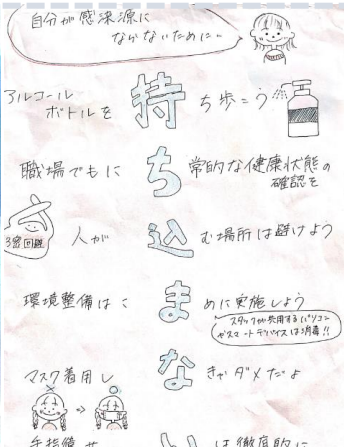 自分が感染源に
ならないために…
アルコール
ボトルを
持ち歩こう
職場でもに
ち常的な健康状態の
確認を
3密回避
人が込む場所は避けよう
環境整備はこまめに実施しよう
スタッフが共用するパソコン
やスマートデバイスは消毒!!
マスク着用し
なきゃダメだよ
い は徹底的に